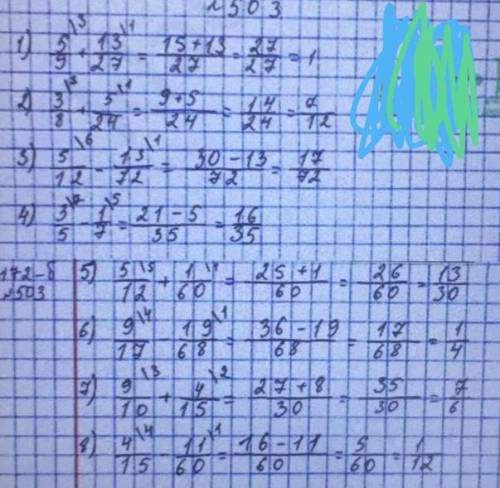 №503
1) 5/9\3 + 13/27\1 = 15+13/27 = 27/27 = 1
2) 3/8\3 + 5/24\1 = 9+5/24 = 14/24 = 7/12
3) 5/12\6 - 13/72\1 = 30-13/72 = 17/72
4) 3/5\7 - 1/7\5 = 21-5/35 = 16/35
172-б
№503
5) 5/12\5 + 1/60\1 = 25+1/60 = 26/60 = 13/30
6) 9/17\4 - 19/68\1 = 36-19/68 = 17/68 = 1/4
7) 9/10\3 + 4/15\2 = 27+8/30 = 35/30 = 7/6
8) 4/15\4 - 11/60\1 = 16-11/60 = 5/60 = 1/12